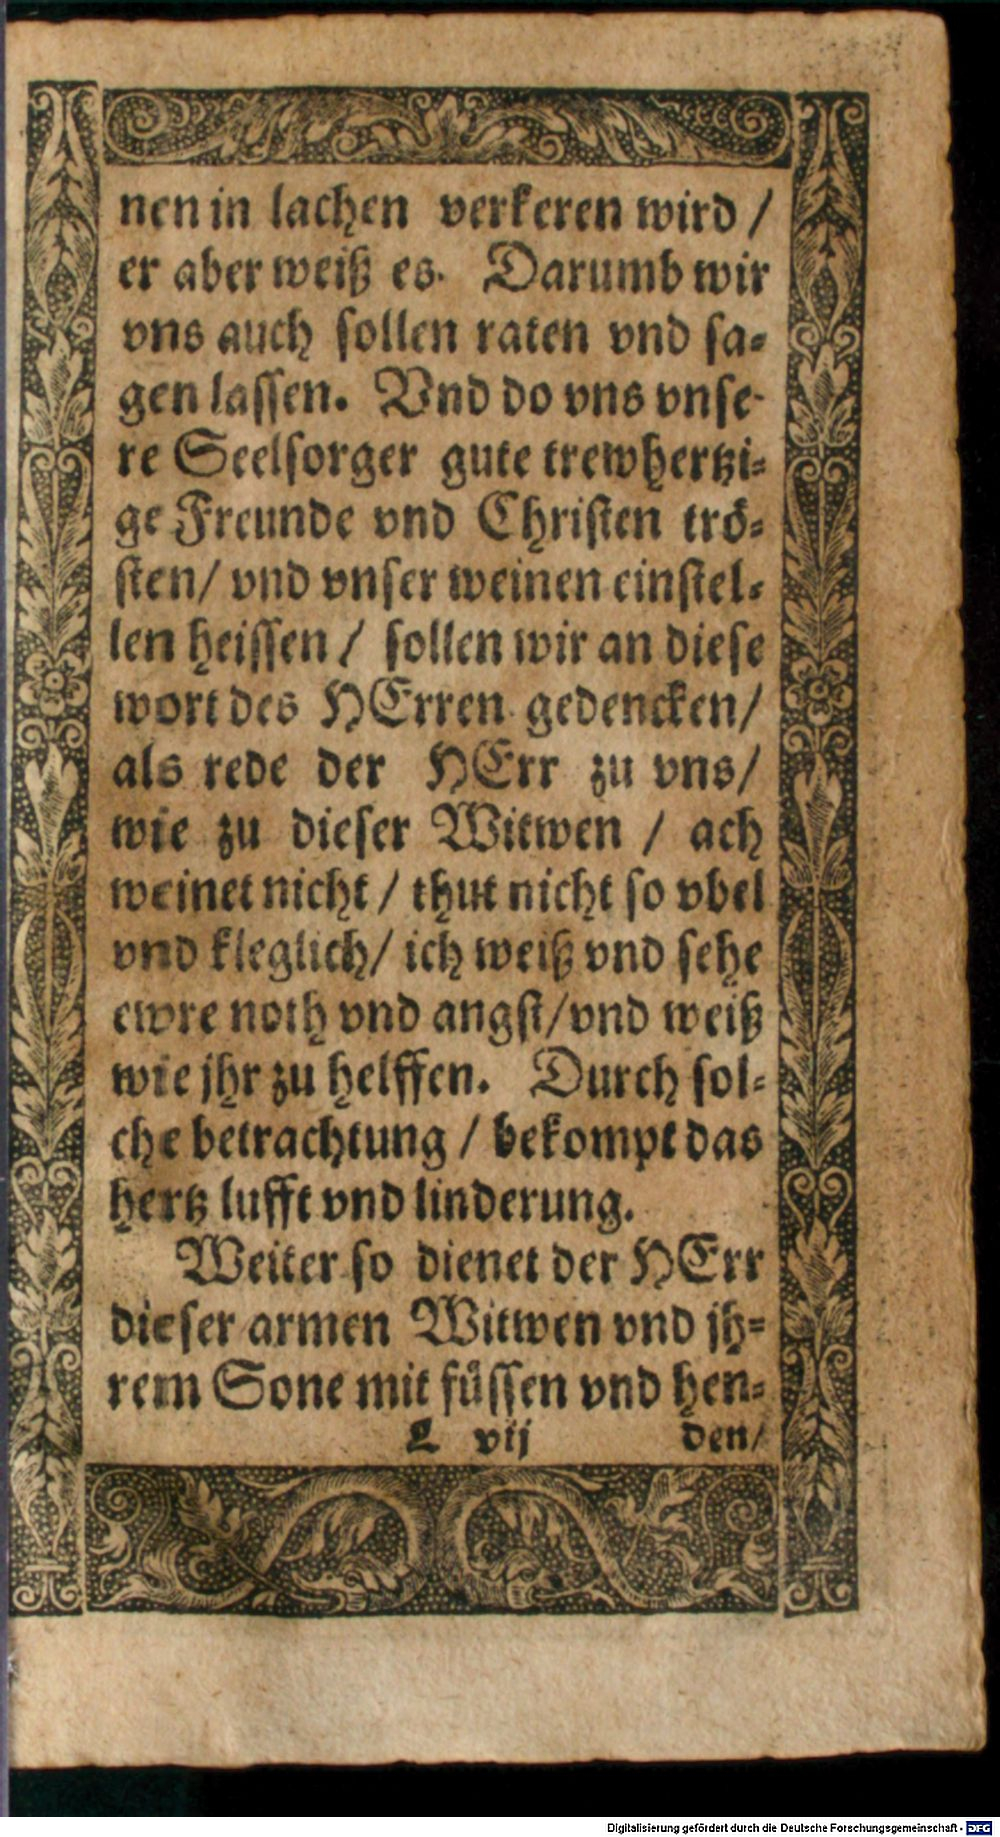 nen in lachen verkeren wird /
er aber weiß es. Darumb wir
vns auch sollen raten vnd sa-
gen lassen. Vnd do vns vnse-
re Seelsorger gute trewhertzi-
ge Freunde vnd Christen trö-
sten/ vnd vnser weinen einstel-
len heissen / sollen wir an diese
wort des HErren gedencken/
als rede der HErr zu vns/
wie zu dieser Witwen / ach
weinet nicht / thut nicht so vbel
vnd kleglich/ ich weiß vnd sehe
ewre noth vnd angst/vnd weiß
wie jhr zu helffen. Durch sol-
che betrachtung / bekompt das
hertz lufft vnd linderung.
Weiter so dienet der HErr
dieser armen Witwen vnd jh-
rem Sone mit füssen vnd hen-
L vij den/
Digitalisierung gefördert durch die Deutsche Forschungsgemeinschaft - DFG